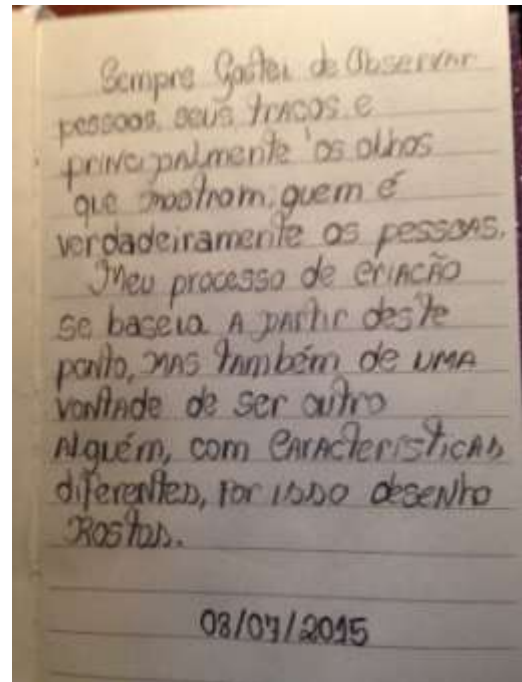 Sempre Gostei de Observar
pessoas, seus traços e
principalmente os olhos
que mostram, quem é
verdadeiramente as pessoas.
Meu processo de criação
se baseia A partir deste
ponto, mas também de UMA
vontade de ser outro
Alguém, com características
diferentes, Por isso desenho
Rostos.
03/07/2015